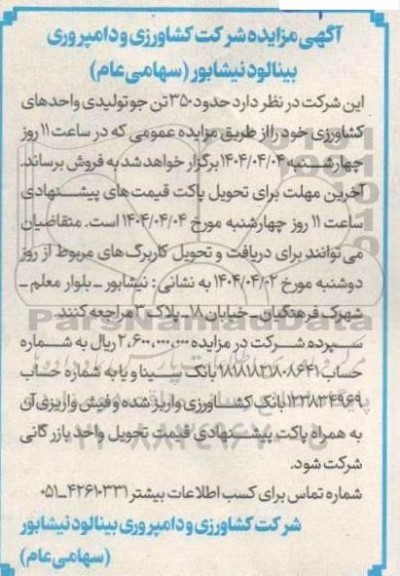 آگهی مزایده شرکت کشاورزی و دامپروری
بینالود نیشابور (سهامی عام)
این شرکت در نظر دارد حدود ۳۵۰ تن جو تولیدی واحدهای
کشاورزی خود را از طریق مزایده عمومی که در ساعت ۱۱ روز
چهارشنبه ۱۴۰۴/۰۴/۰۴ برگزار خواهد شد به فروش برساند.
آخرین مهلت برای تحویل پاکت قیمت‌های پیشنهادی
ساعت ۱۱ روز چهارشنبه مورخ ۱۴۰۴/۰۴/۰۴ است. متقاضیان
می‌توانند برای دریافت و تحویل کاربرگ‌های مربوط از روز
دوشنبه مورخ ۱۴۰۴/۰۴/۰۲ به نشانی: نیشابور ـ بلوار معلم ـ
شهرک فرهنگیان ـ خیابان ۱۸ ـ پلاک ۳ مراجعه کنند.
ParsNamadData
سپرده شرکت در مزایده ۲،۶۰۰،۰۰۰،۰۰۰ ریال به شماره
حساب ۱۸۱۸۱۸۲۱۸۰۸۶۴۱ بانک سینا و یا به شماره حساب
۱۲۳۸۳۴۹۶۹ بانک کشاورزی واریز شده و فیش واریزی آن
به همراه پاکت پیشنهادی قیمت تحویل واحد بازرگانی
شرکت شود.
شماره تماس برای کسب اطلاعات بیشتر ۴۲۶۱۰۳۳۱ـ۰۵۱
شرکت کشاورزی و دامپروری بینالود نیشابور
(سهامی عام)